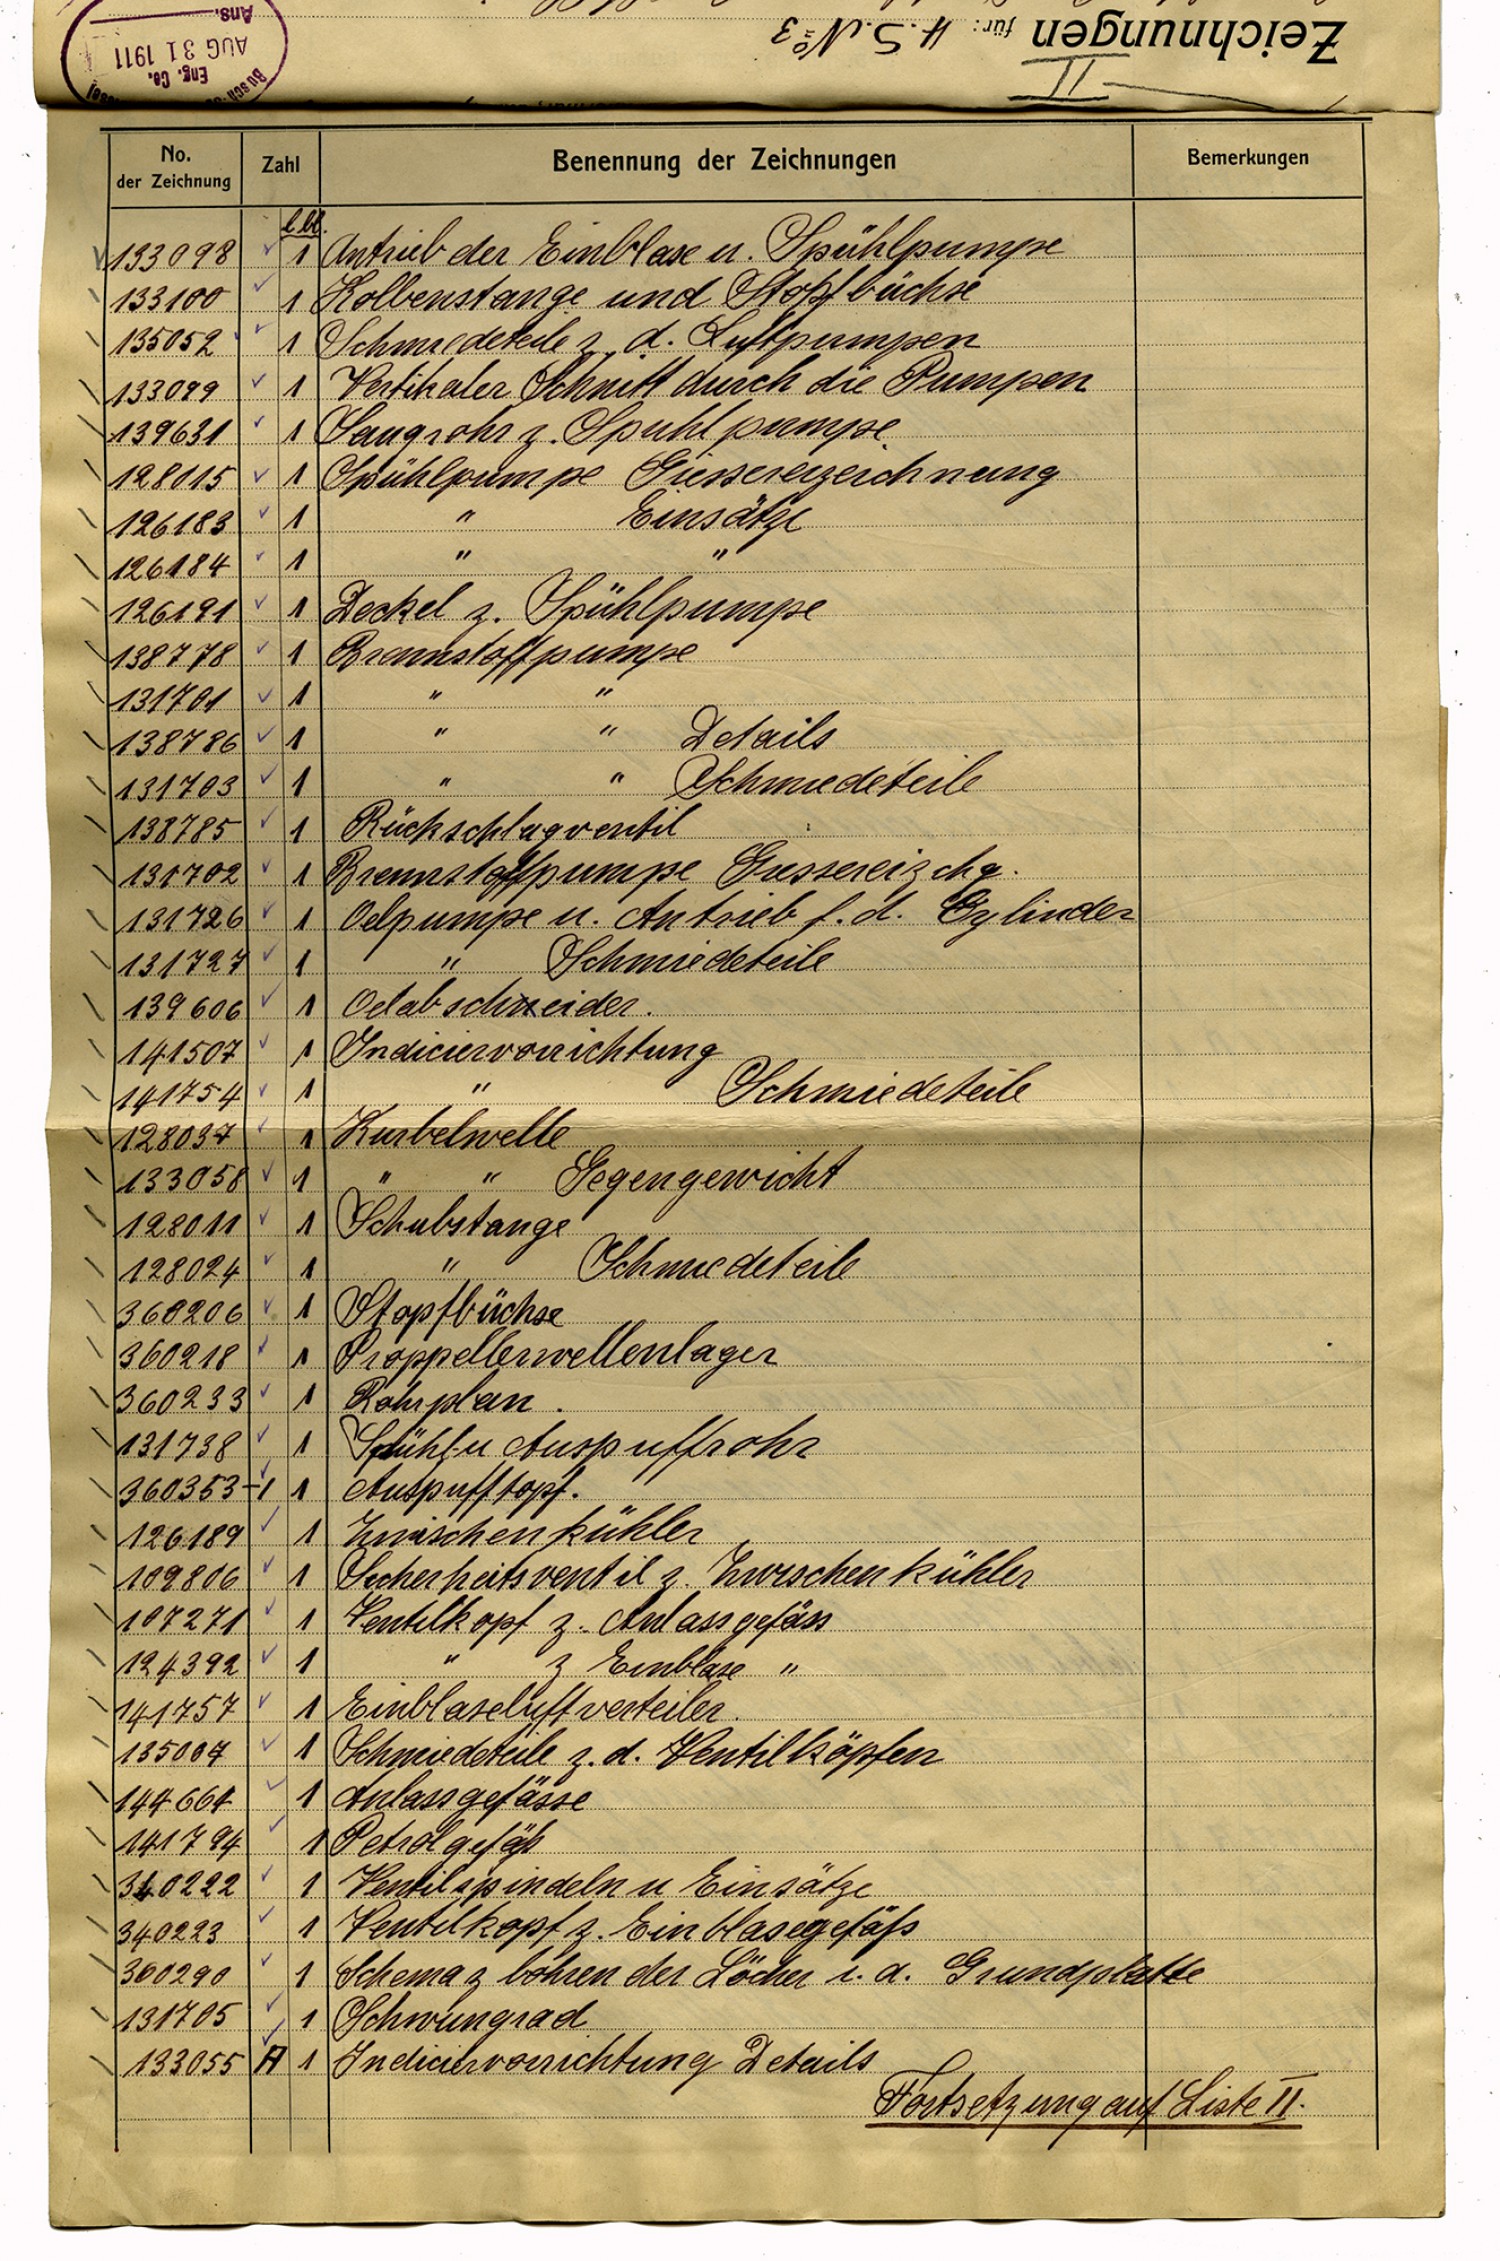 Zeichnungen für: H. S. No 3
II
Busch-
Eng. Co.
AUG 31 1911
Ans.
No. der Zeichnung Zahl Benennung der Zeichnungen Bemerkungen
133098 1 Antrieb der Einblase u. Spühlpumpe
133100 1 Kolbenstange und Stopfbüchse
135052 1 Schmiedeteile z. d. Luftpumpen
133099 1 Vertikaler Schnitt durch die Pumpen
139631 1 Saugrohr z. Spühlpumpe
128015 1 Spühlpumpe Giessereizeichnung
126183 1 " Einsätze
126184 1 " "
126191 1 Deckel z. Spühlpumpe
138778 1 Brennstoffpumpe
131701 1 " "
138786 1 " " Details
131703 1 " " Schmiedeteile
138785 1 Rückschlagventil
131702 1 Brennstoffpumpe Giessereizchg.
131726 1 Oelpumpe u. Antrieb f. d. Cylinder
131727 1 " Schmiedeteile
139606 1 Oelabschneider.
141507 1 Indiciervorrichtung
141754 1 " Schmiedeteile
128037 1 Kurbelwelle
133058 1 " " Gegengewicht
128011 1 Schubstange
128024 1 " Schmiedeteile
360206 1 Stopfbüchse
360218 1 Proppellerwellenlager
360233 1 Rohrplan.
131738 1 Spühl-u Auspuffrohr
360353-1 1 Auspufftopf.
126189 1 Zwischenkühler
109806 1 Sicherheitsventil z. Zwischenkühler
107271 1 Ventilkopf z. Anlassgefäss
124392 1 " z Einblase "
141757 1 Einblaseluftverteiler.
135007 1 Schmiedeteile z. d. Ventilköpfen
144661 1 Anlassgefässe
141794 1 Petrolgefäß
340222 1 Ventilspindeln u Einsätze
340223 1 Ventilkopf z. Einblasegefäß
360290 1 Schema z bohren der Löcher i. d. Grundplatte
131705 1 Schwungrad
133055 A 1 Indiciervorrichtung Details
Fortsetzung auf Liste II.